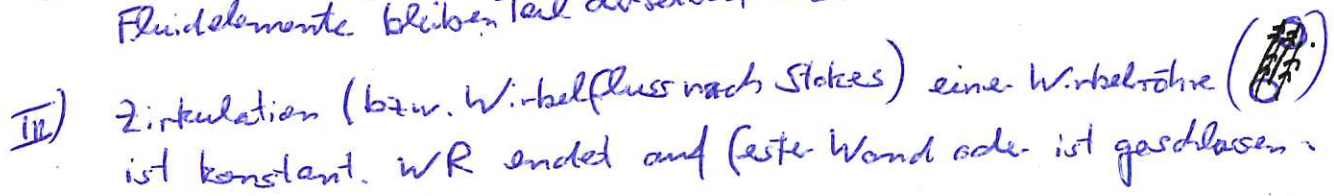 Fluidelemente bleiben Teil
III) Zirkulation (bzw. Wirbelfluss nach Stokes) einer Wirbelröhre ( )
ist konstant. WR endet auf fester Wand oder ist geschlossen.